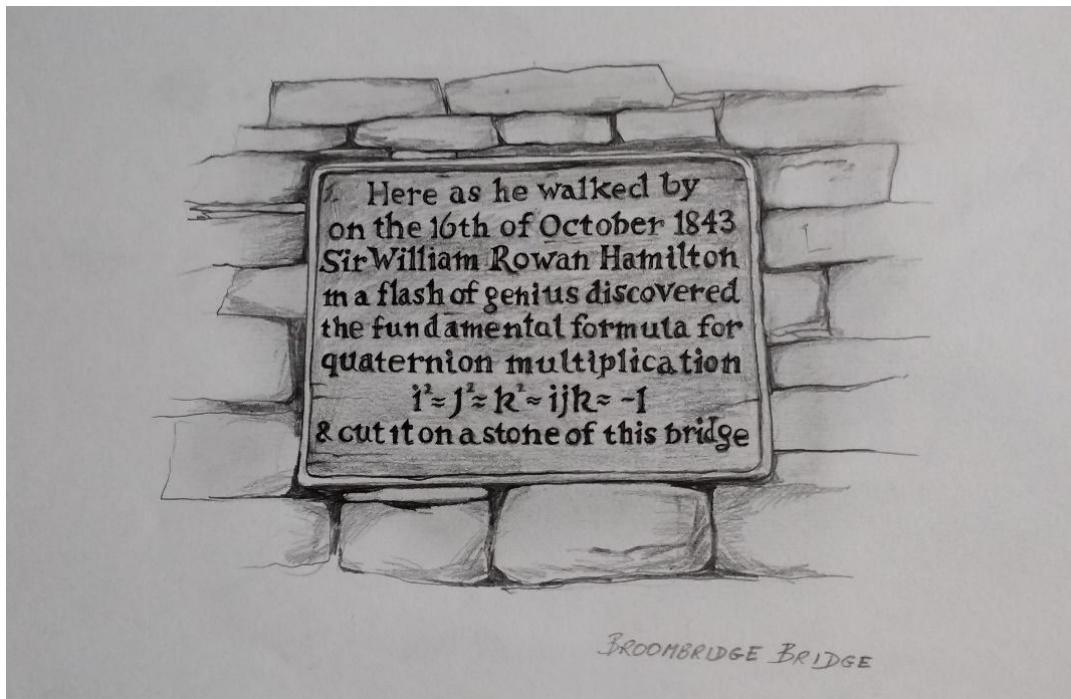 Here as he walked by
on the 16th of October 1843
Sir William Rowan Hamilton
in a flash of genius discovered
the fundamental formula for
quaternion multiplication
i² ≈ j² ≈ k² ≈ ijk ≈ -1
& cut it on a stone of this bridge
BROOMBRIDGE BRIDGE